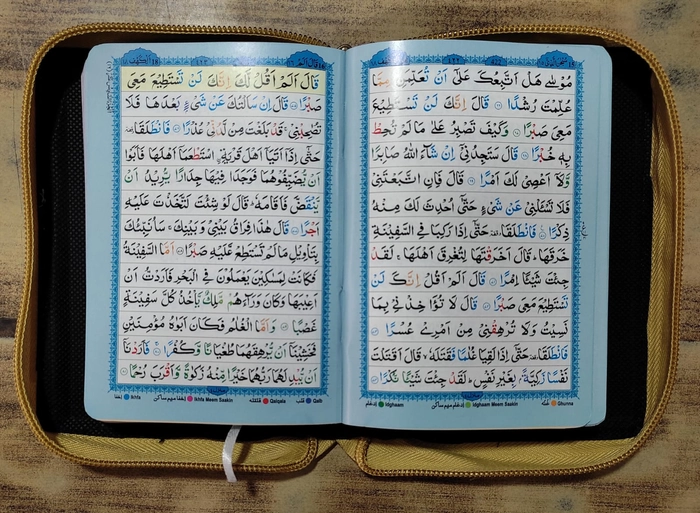 مُوْسٰى هَلْ اَتَّبِعُكَ عَلٰٓى اَنْ تُعَلِّمَنِ مِمَّا
عُلِّمْتَ رُشْدًا ۝ قَالَ اِنَّكَ لَنْ تَسْتَطِيْعَ
مَعِيَ صَبْرًا ۝ وَكَيْفَ تَصْبِرُ عَلٰى مَا لَمْ تُحِطْ
بِهٖ خُبْرًا ۝ قَالَ سَتَجِدُنِيْٓ اِنْ شَآءَ اللّٰهُ صَابِرًا
وَّلَآ اَعْصِيْ لَكَ اَمْرًا ۝ قَالَ فَاِنِ اتَّبَعْتَنِيْ
فَلَا تَسْـَٔلْنِيْ عَنْ شَيْءٍ حَتّٰٓى اُحْدِثَ لَكَ مِنْهُ
ذِكْرًا ۝ فَانْطَلَقَا حَتّٰٓى اِذَا رَكِبَا فِي السَّفِيْنَةِ
خَرَقَهَا ؕ قَالَ اَخَرَقْتَهَا لِتُغْرِقَ اَهْلَهَا ۚ لَقَدْ
جِئْتَ شَيْـًٔا اِمْرًا ۝ قَالَ اَلَمْ اَقُلْ اِنَّكَ لَنْ
تَسْتَطِيْعَ مَعِيَ صَبْرًا ۝ قَالَ لَا تُؤَاخِذْنِيْ بِمَا
نَسِيْتُ وَلَا تُرْهِقْنِيْ مِنْ اَمْرِيْ عُسْرًا ۝
فَانْطَلَقَا حَتّٰٓى اِذَا لَقِيَا غُلٰمًا فَقَتَلَهٗ ۙ قَالَ اَقَتَلْتَ
نَفْسًا زَكِيَّةًۢ بِغَيْرِ نَفْسٍ ؕ لَقَدْ جِئْتَ شَيْـًٔا نُّكْرًا ۝
ادغام Idghaam ادغام میم ساکن Idghaam Meem Saakin غنّہ Ghunna
قَالَ اَلَمْ اَقُلْ لَّكَ اِنَّكَ لَنْ تَسْتَطِيْعَ مَعِيَ
صَبْرًا ۝ قَالَ اِنْ سَاَلْتُكَ عَنْ شَيْءٍۭ بَعْدَهَا فَلَا
تُصٰحِبْنِيْ ۚ قَدْ بَلَغْتَ مِنْ لَّدُنِّيْ عُذْرًا ۝ فَانْطَلَقَا
حَتّٰٓى اِذَآ اَتَيَآ اَهْلَ قَرْيَةِ ۨاسْتَطْعَمَآ اَهْلَهَا فَاَبَوْا
اَنْ يُّضَيِّفُوْهُمَا فَوَجَدَا فِيْهَا جِدَارًا يُّرِيْدُ اَنْ
يَّنْقَضَّ فَاَقَامَهٗ ؕ قَالَ لَوْ شِئْتَ لَتَّخَذْتَ عَلَيْهِ
اَجْرًا ۝ قَالَ هٰذَا فِرَاقُ بَيْنِيْ وَبَيْنِكَ ۚ سَاُنَبِّئُكَ
بِتَاْوِيْلِ مَا لَمْ تَسْتَطِعْ عَّلَيْهِ صَبْرًا ۝ اَمَّا السَّفِيْنَةُ
فَكَانَتْ لِمَسٰكِيْنَ يَعْمَلُوْنَ فِي الْبَحْرِ فَاَرَدْتُّ اَنْ
اَعِيْبَهَا وَكَانَ وَرَآءَهُمْ مَّلِكٌ يَّاْخُذُ كُلَّ سَفِيْنَةٍ
غَصْبًا ۝ وَاَمَّا الْغُلٰمُ فَكَانَ اَبَوٰهُ مُؤْمِنَيْنِ
فَخَشِيْنَآ اَنْ يُّرْهِقَهُمَا طُغْيَانًا وَّكُفْرًا ۝ فَاَرَدْنَآ
اَنْ يُّبْدِلَهُمَا رَبُّهُمَا خَيْرًا مِّنْهُ زَكٰوةً وَّاَقْرَبَ رُحْمًا ۝
اخفا Ikhfa اخفا میم ساکن Ikhfa Meem Saakin قلقلہ Qalqala قلب Qalb